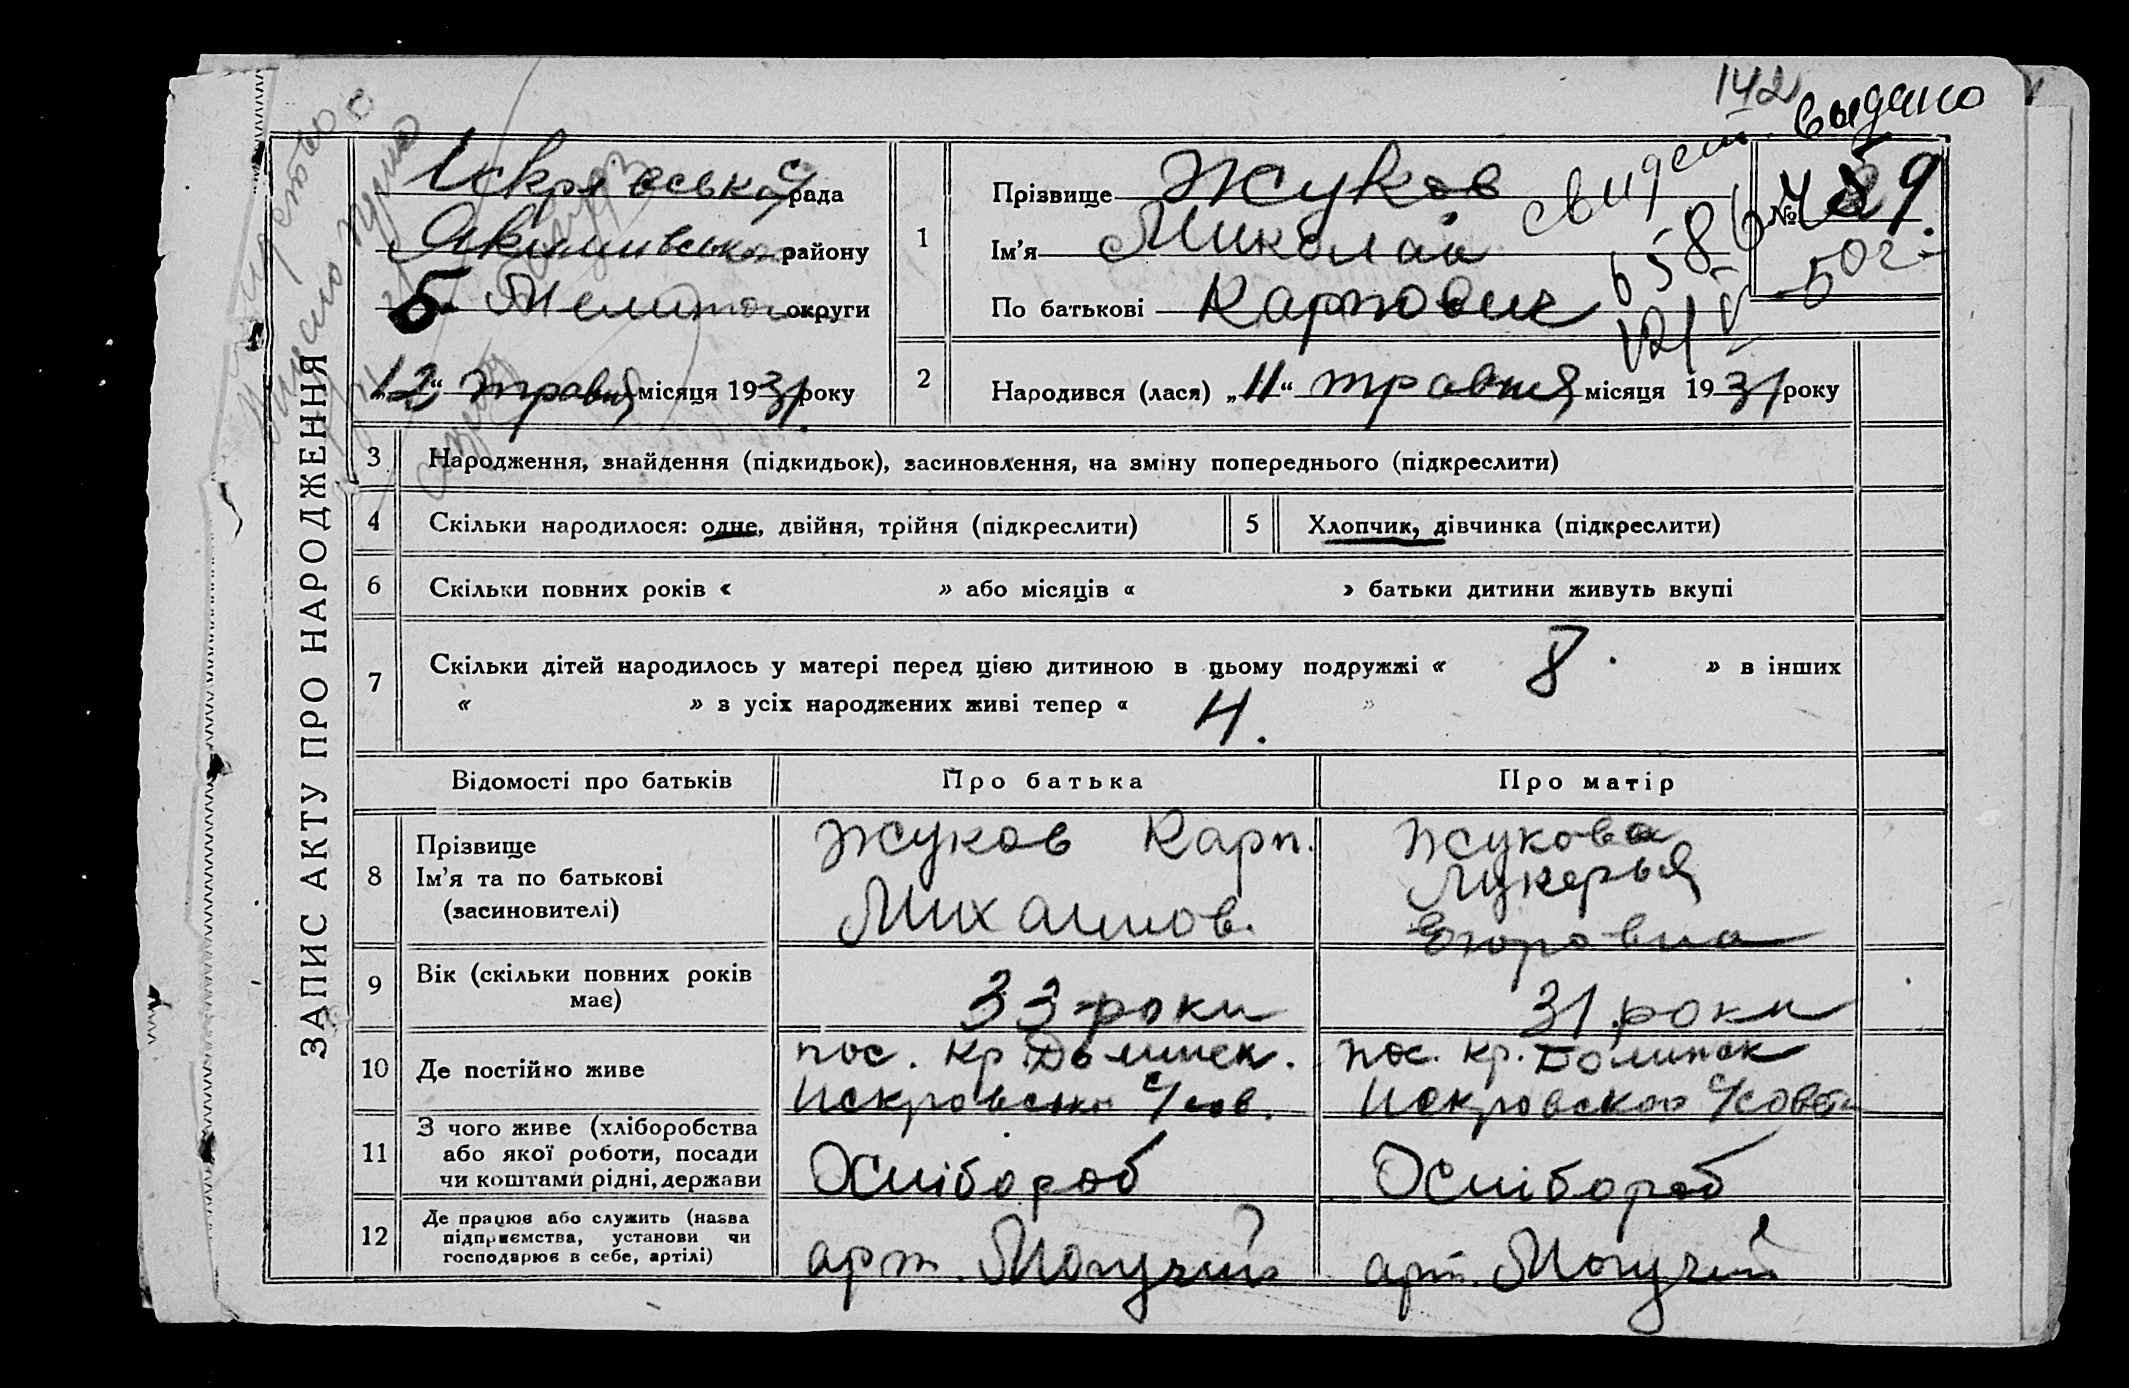 142
свидет. выдано
ЗАПИС АКТУ ПРО НАРОДЖЕННЯ
Искрівська с/рада
Якимівськ району
Б. Мелитоп округи
„12“ травня місяця 1931 року
1
Прізвище Жуков
Ім'я Миколай
По батькові Карпович
№
50 г.
2
Народився (лася) „11“ травня місяця 1931 року
3 Народження, знайдення (підкидьок), засиновлення, на зміну попереднього (підкреслити)
4 Скільки народилося: одне, двійня, трійня (підкреслити)
5 Хлопчик, дівчинка (підкреслити)
6 Скільки повних років « » або місяців « » батьки дитини живуть вкупі
7 Скільки дітей народилось у матері перед цією дитиною в цьому подружжі « 8. » в інших
« » з усіх народжених живі тепер « 4. »
Відомості про батьків Про батька Про матір
8 Прізвище
Ім'я та по батькові
(засиновителі)
Жуков Карп.
Михаилов.
Жукова
Лукерья
Егоровна
9 Вік (скільки повних років
має)
33 роки
31 роки
10 Де постійно живе
пос. Кр.
Искровськ с/сов.
пос. Кр.
Искровской с/совета
11 З чого живе (хліборобства
або якої роботи, посади
чи коштами рідні, держави
Хлібороб
Хлібороб
12 Де працює або служить (назва
підприємства, установи чи
господарює в себе, артілі)
арт. Могучий
арт. Могучий